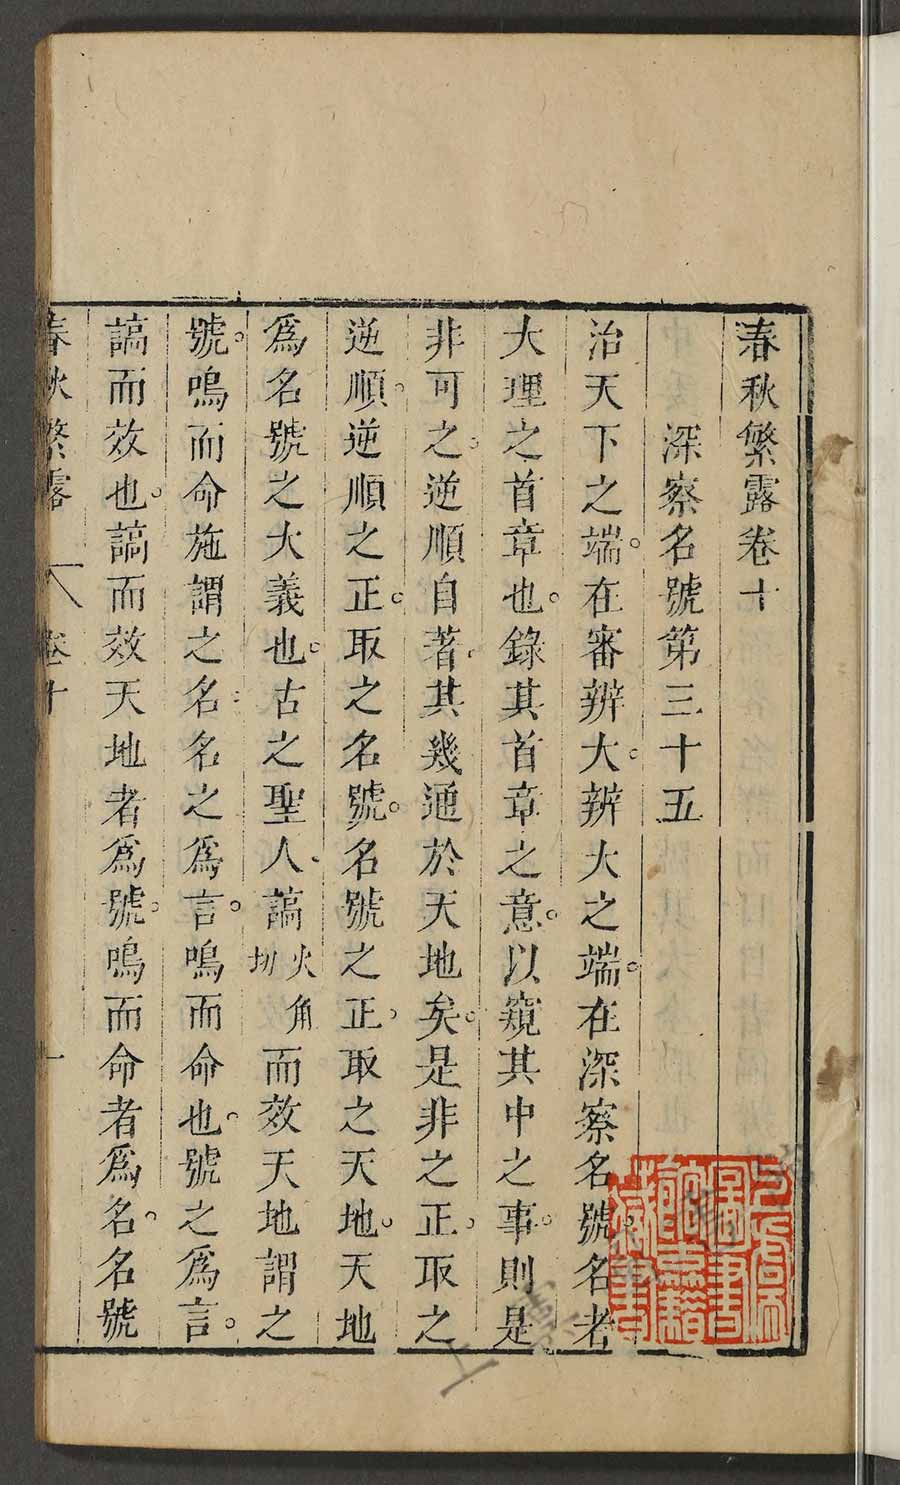 春秋繁露卷十
深察名號第三十五
治天下之端。在審辨大。辨大之端。在深察名號。名者
大理之首章也。錄其首章之意。以窺其中之事。則是
非可之。逆順自著。其幾通於天地矣。是非之正。取之
逆順。逆順之正。取之名號。名號之正。取之天地。天地
爲名號之大義也。古之聖人。謞火角切而效天地謂之
號。鳴而命施謂之名。名之爲言。鳴而命也。號之爲言。
謞而效也。謞而效天地者爲號。鳴而命者爲名。名號
春秋繁露 卷十 一